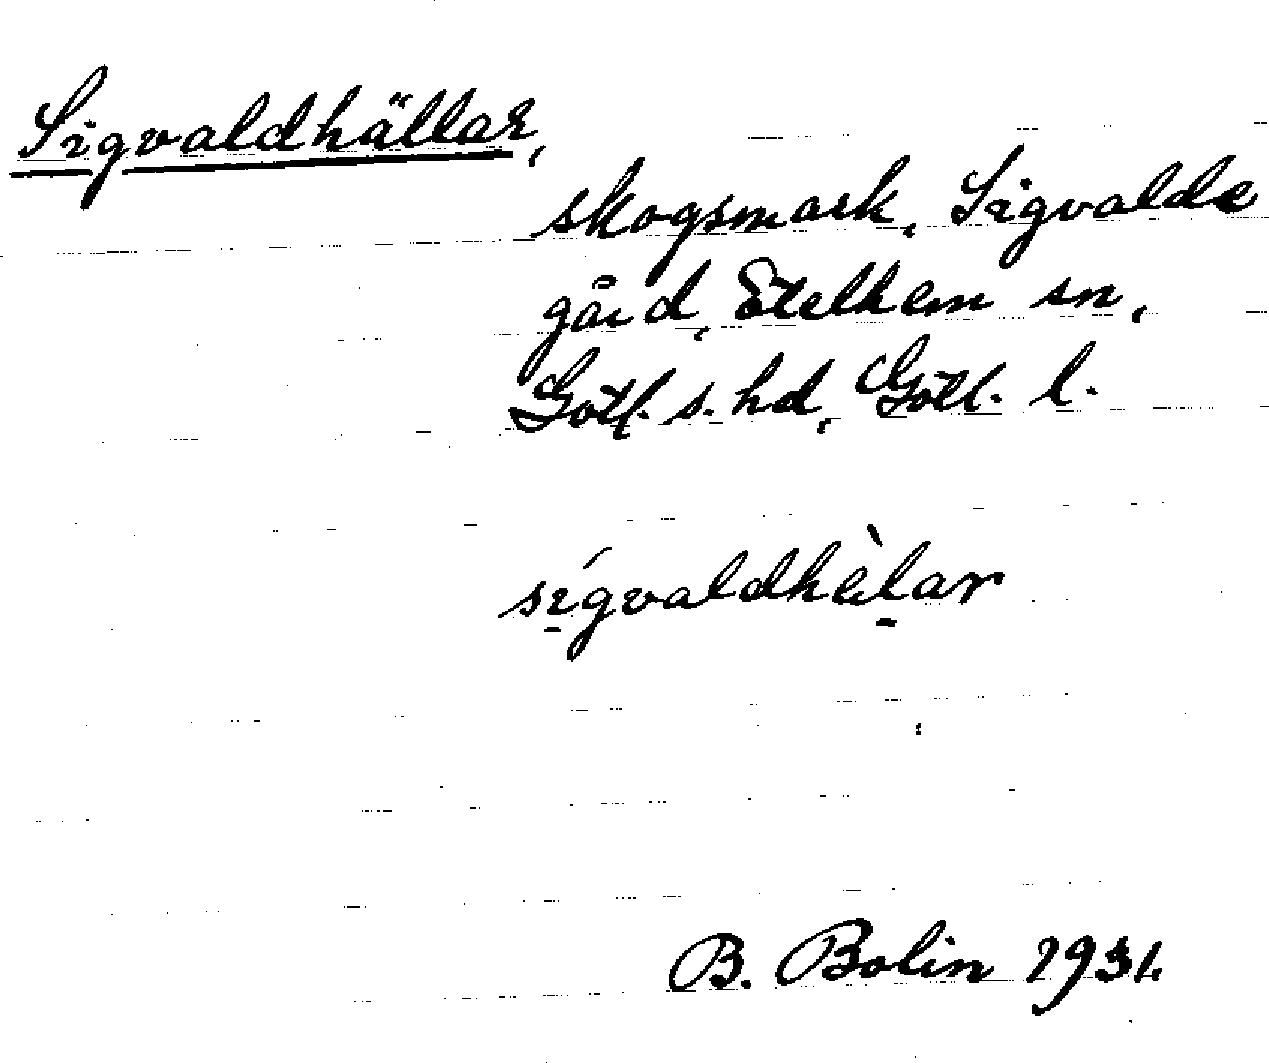 Sigvaldhällar,
skogsmark, Sigvalde
gård, Etelhem sn,
Gotl. s. hd, Gotl. l.
sígvaldhèlar
B. Bolin 1931.